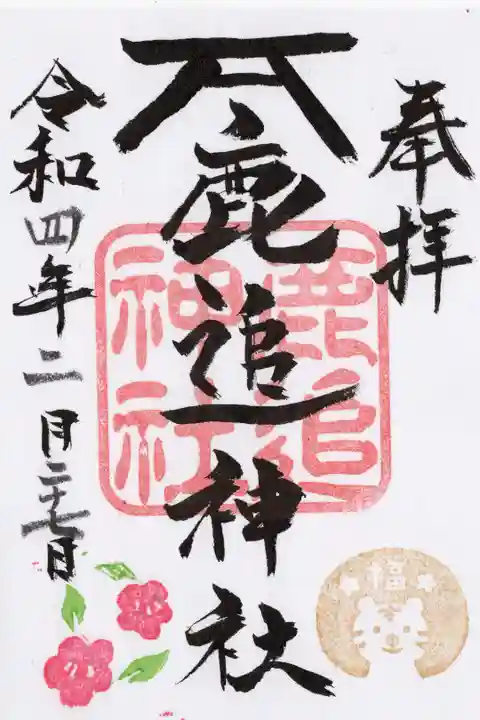 奉拝
鹿追神社
鹿追
神社
令和四年二月二十七日
福